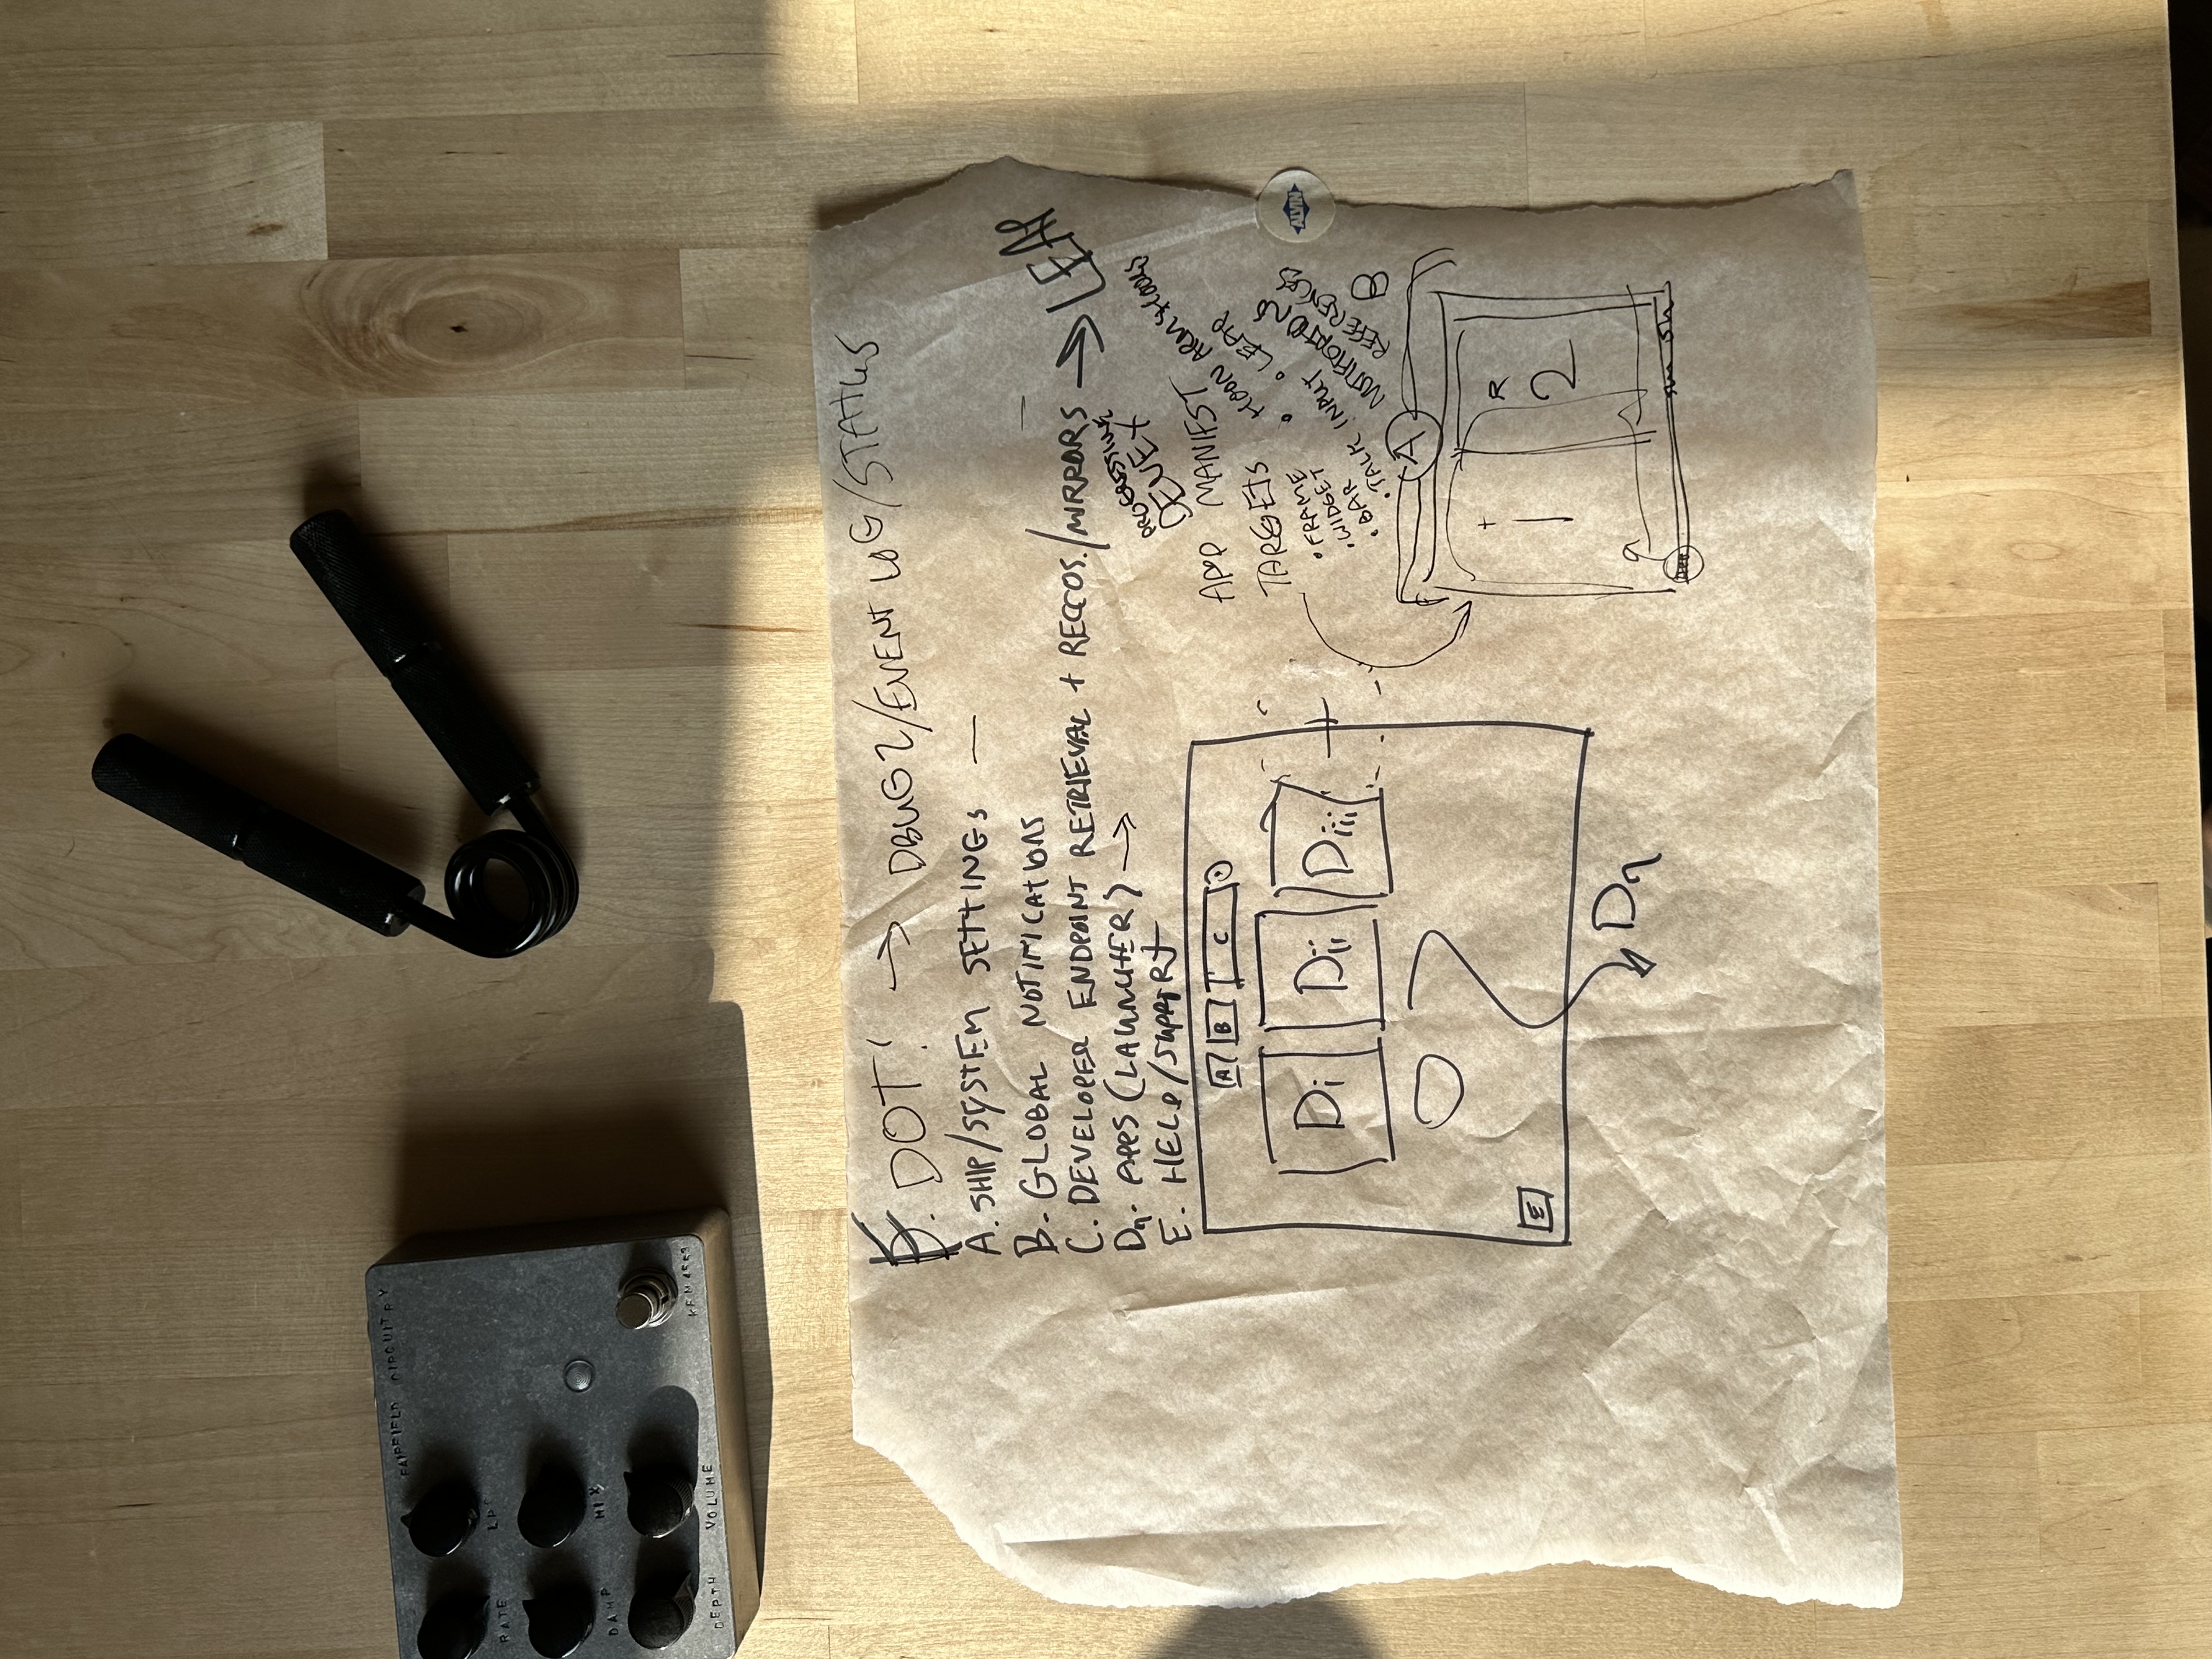 FAIRFIELD CIRCUITRY
RATE
LPG
DAMP
MIX
DEPTH
VOLUME
F. DOT! → DBUG2/EVENT LOG/STATUS
A. SHIP/SYSTEM SETTINGS —
B. GLOBAL NOTIFICATIONS
C. DEVELOPER ENDPOINT RETRIEVAL + RECCOS./MIRRORS → LEAP
Dn. APPS (LAUNCHER) →
E. HELP/SUPPORT
PROGRESSIVE
DEVEX
APP MANIFEST
TARGETS
• FRAME
• WIDGET
• BAR
• TALK INPUT
• HOON ARMS/HOOKS
• LEAP
NOTIFICATIONS
REFERENCES
ALVIN
A
B
C
Di
Dii
Diii
+
E
Dn
A
1
R
2